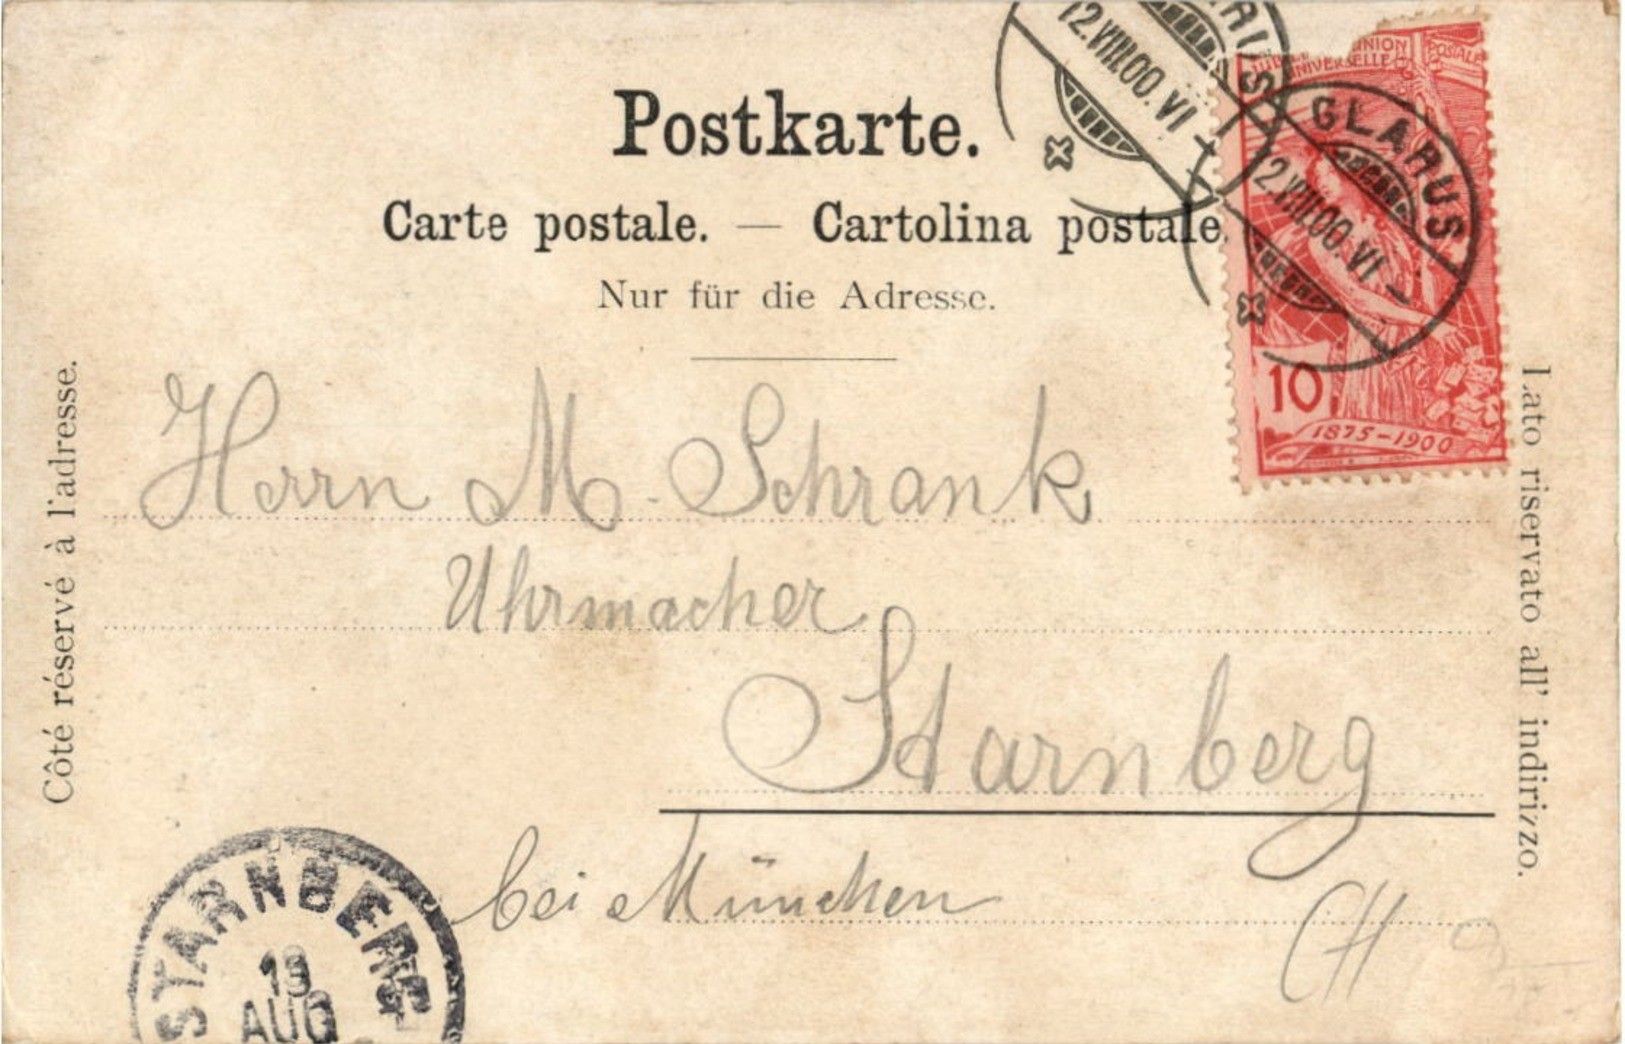 Postkarte.
Carte postale. — Cartolina postale.
Nur für die Adresse.
Côté réservé à l'adresse.
Lato riservato all' indirizzo.
12.VIII.00.VI-
UNION POSTALE
UNIVERSELLE
GLARUS
12.VIII.00.VI-
10
1875-1900
Herrn M. Schrank
Uhrmacher
Starnberg
bei München
STARNBERG
13
AUG